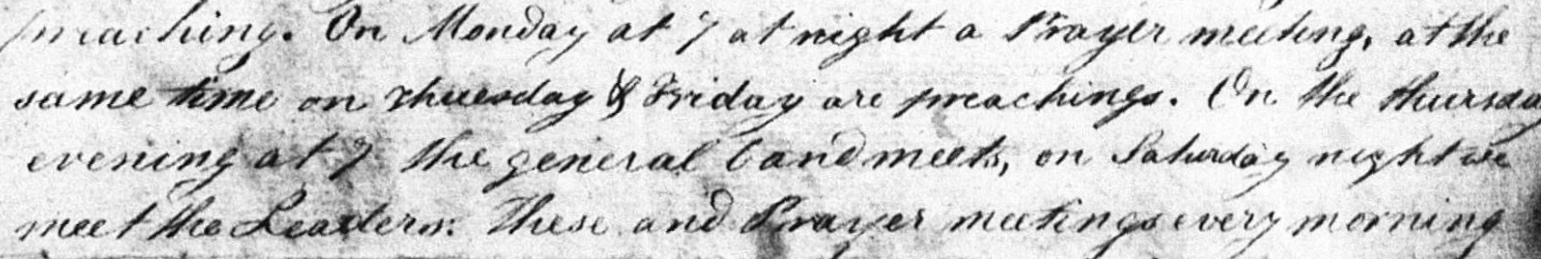 preaching. On Monday at 7 at night a Prayer meeting, at the
same time on thuesday & Friday are preachings. On the thursday
evening at 7 the general band meets, on Saturday night we
meet the Leaders: These and Prayer meetings every morning